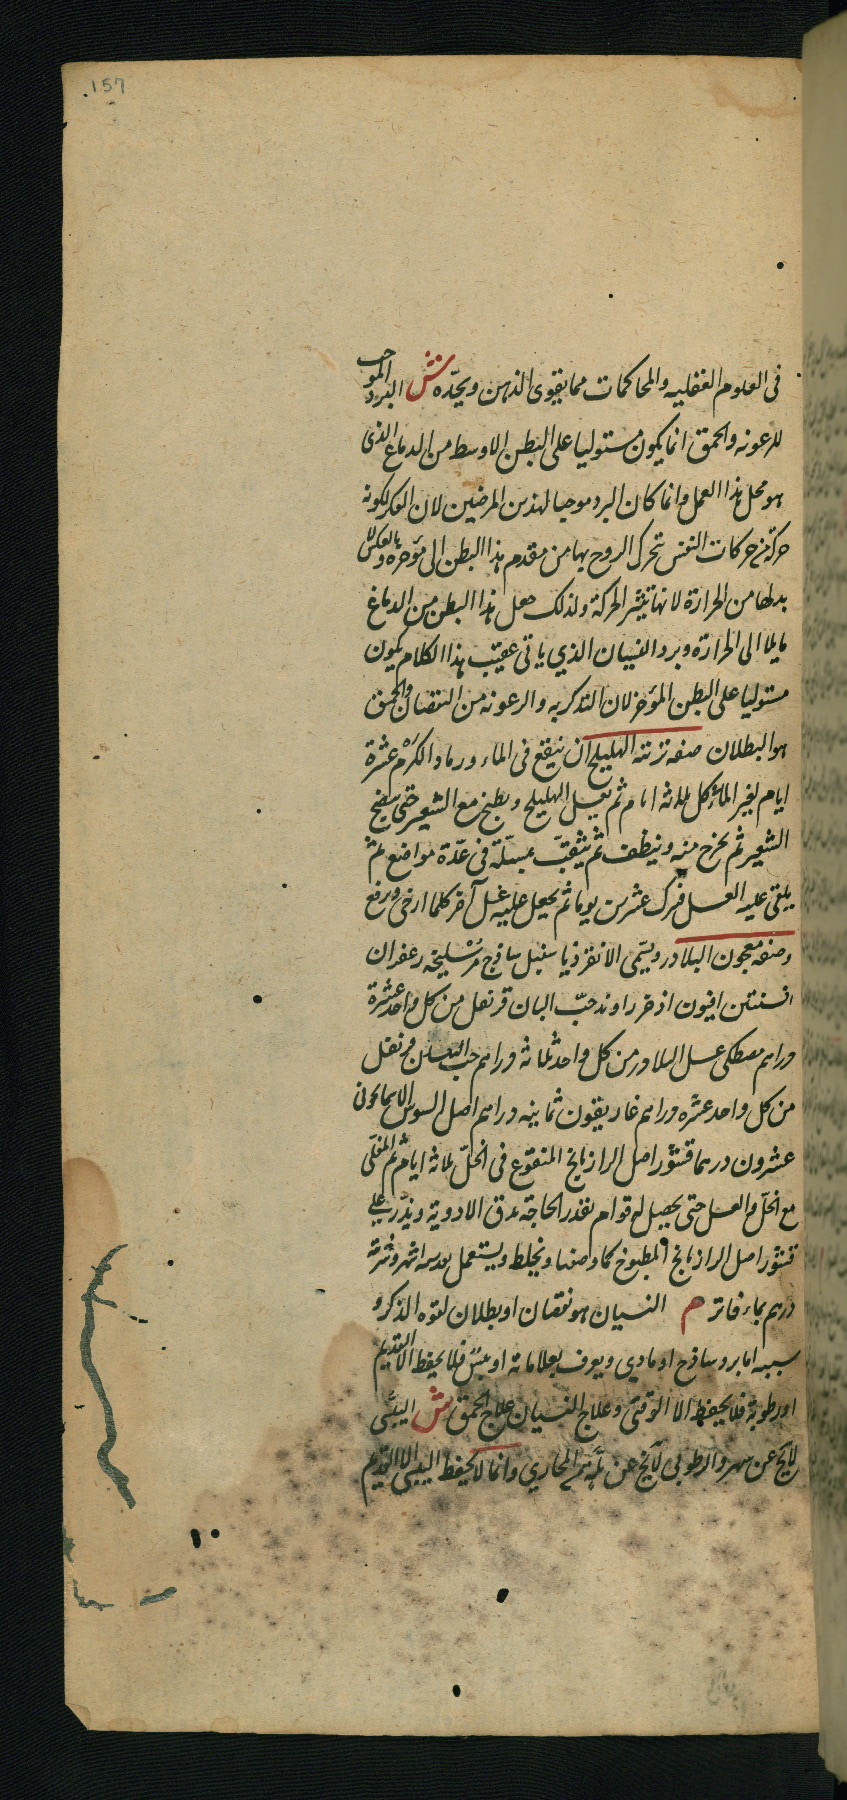 157
فى العلوم العقليه والمحاكمات مما يقوى الذهن ويحدّه ش البرد الموجب
للرعونه والحمق انما يكون مستوليا على البطن الاوسط من الدماغ الذى
هو محل هذا العمل وانما كان البرد موجبا لهذين المرضين لان الفكر لكونه
حركة من حركات النفس تتحرك الروح بها من مقدم هذا البطن الى مؤخره وبالعكس لا
بد لها من الحرارة لانها تثير الحركة ولذلك جعل هذا البطن من الدماغ
مايلا الى الحرارة وبرد النسيان الذي ياتى عقيب هذا الكلام يكون
مستوليا على البطن المؤخر لان التذكر به والرعونه من النقصان والحمق
هو البطلان صفه تربته الهليلج ان ينقع فى الماء ورماد الكرم عشرة
ايام يغير الماء كل ثلاثة ايام ثم يغسل الهليلج ويطبخ مع الشعير حتى ينضج
الشعير ثم يخرج منه وينظف ثم يثقب بمسلّة فى عدّة مواضع ثم
يلقى عليه العسل فيترك عشرين يوما ثم يجعل عليه عسل آخر كلما ارخى ورفع
وصفه معجون البلادر ويسمى الانقرذيا سنبل ساذج مرّ سليخه زعفران
افسنتين افيون اذخر راوند حبّ البان قرنفل من كل واحد عشرة
دراهم مصطكى عسل البلادر من كل واحد ثلاثة دراهم حب البلسان قرنفل
من كل واحد عشره دراهم غاريقون ثمانيه دراهم اصل السوس الاسمانجونى
عشرون درهما قشور اصل الرازيانج المنقوع فى الخل ثلاثة ايام ثم المغلّى
مع الخلّ والعسل حتى يحصل له قوام بقدر الحاجة يدق الادوية ويذرّ على
قشور اصل الرازيانج المطبوخ كما وصفنا ويخلط ويستعمل بعد ستة اشهر وشربته
درهم بماء فاتر م النسيان هو نقصان او بطلان لقوه الذكر و
سببه اما برد ساذج او مادي ويعرف بعلاماته او يبس فلا يحفظ الا القديم
او رطوبة فلا يحفظ الا الوقتى وعلاج النسيان علاج الحمق ش اليبسى
لا يخ عن سهر والرطوبى لا يخ عن المجاري وانما لا يحفظ اليبسى الا القديم